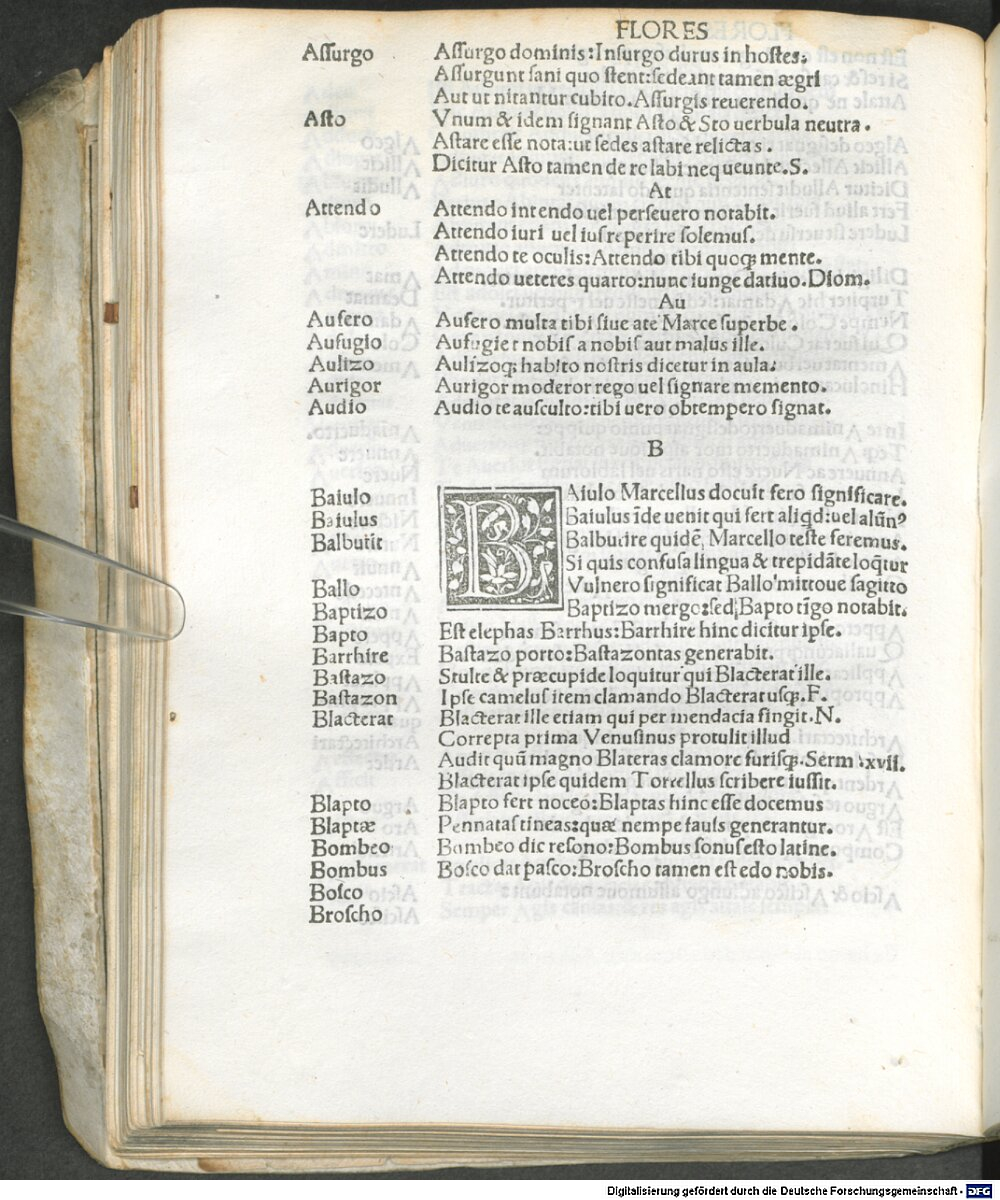 FLORES
Aſſurgo Aſſurgo dominis:Inſurgo durus in hoſtes.
Aſſurgunt ſani quo ſtent:ſedeant tamen ægri
Aut ut nitantur cubito.Aſſurgis reuerendo.
Aſto Vnum & idem ſignant Aſto & Sto uerbula neutra.
Aſtare eſſe nota:ut ſedes aſtare relictas.
Dicitur Aſto tamen de re labi nequeunte.S.
At
Attendo Attendo intendo uel perſeuero notabit.
Attendo iuri uel ius reperire ſolemus.
Attendo te oculis:Attendo tibi quoq; mente.
Attendo ueteres quarto:nunc iunge datiuo.Diom.
Au
Aufero Aufero multa tibi ſiue a te Marce ſuperbe.
Aufugio Aufugiet nobis a nobis aut malus ille.
Aulizo Aulizoq; habito noſtris dicetur in aula.
Aurigor Aurigor moderor rego uel ſignare memento.
Audio Audio te auſculto:tibi uero obtempero ſignat.
B
Baiulo BAiulo Marcellus docuit fero ſignificare.
Baiulus Baiulus īde uenit qui fert aliqd:uel alūnꝰ
Balbutit Balbutire quidē Marcello teſte feremus.
Si quis confuſa lingua & trepidāte loq̄tur
Ballo Vulnero ſignificat Ballo mittoue ſagitto
Baptizo Baptizo mergo:ſed Bapto tīgo notabit.
Bapto Eſt elephas Barrhus:Barrhire hinc dicitur ipſe.
Barrhire Baſtazo porto:Baſtazontas generabit.
Baſtazo Stulte & præcupide loquitur qui Blacterat ille.
Baſtazon Ipſe camelus item clamando Blacterat uſq;.F.
Blacterat Blacterat ille etiam qui per mendacia fingit.N.
Correpta prima Venuſinus protulit illud
Audit quū magno Blateras clamore furiſq;.Serm .xvii.
Blacterat ipſe quidem Tortellus ſcribere iuſſit.
Blapto Blapto fert noceo:Blaptas hinc eſſe docemus
Blaptæ Pennatas tineas:quæ nempe fauis generantur.
Bombeo Bombeo dic reſono:Bombus ſonus eſto latine.
Bombus Boſco dat paſco:Broſcho tamen eſt edo nobis.
Boſco
Broſcho
Digitalisierung gefördert durch die Deutsche Forschungsgemeinschaft - DFG